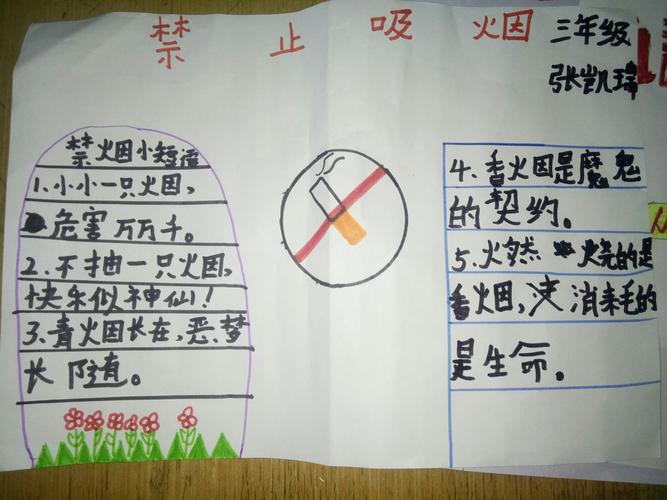 禁止吸烟
三年级
张凯瑞
禁烟小短语
1.小小一只火因,
危害万万千。
2.不抽一只火因,
快乐似神仙!
3.青火因长在,恶梦
长随。
4.香火因是魔鬼
的契约。
5.火然 烧的是
香烟, 消耗的
是生命。